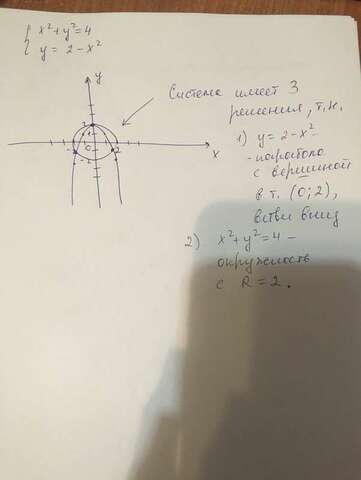 { x²+y²=4
{ y = 2-x²
y
Система имеет 3
решения, т.к.
2
1
0
2
x
-2
-2
1) y = 2-x² -
- парабола
с вершиной
в т. (0; 2),
ветви вниз
2) x²+y²=4 -
окружность
с R = 2.